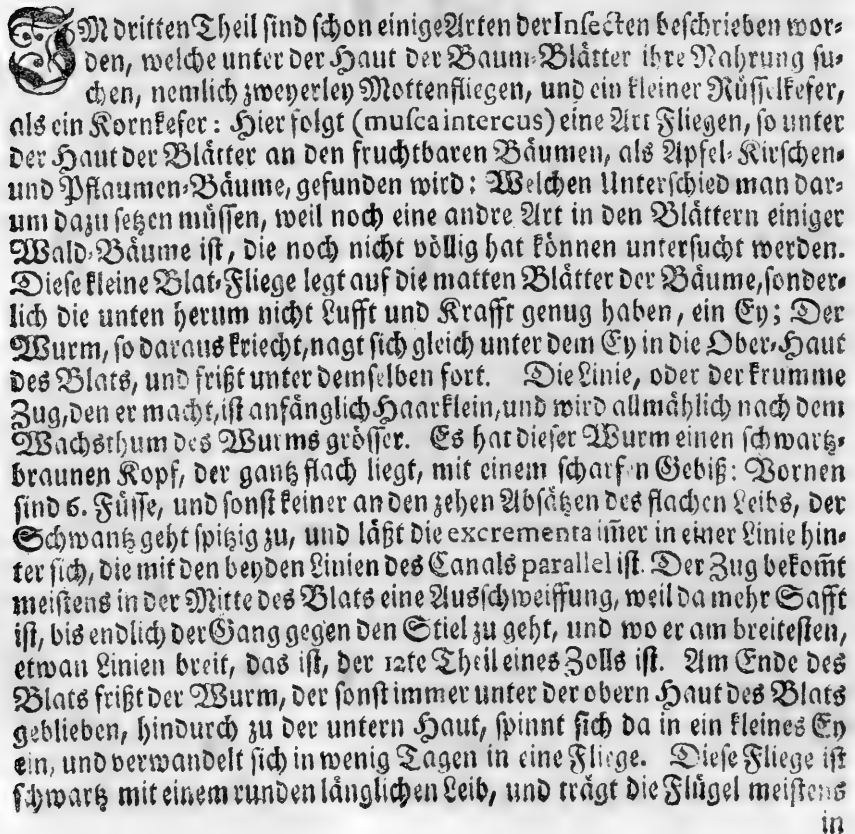 IM dritten Theil sind schon einige Arten der Insecten beschrieben wor-
den, welche unter der Haut der Baum-Blätter ihre Nahrung su-
chen, nemlich zweyerley Mottenfliegen, und ein kleiner Rüsselkefer,
als ein Kornkefer: Hier folgt (musca intercus) eine Art Fliegen, so unter
der Haut der Blätter an den fruchtbaren Bäumen, als Apfel- Kirschen-
und Pflaumen-Bäume, gefunden wird: Welchen Unterschied man dar-
um dazu setzen müssen, weil noch eine andre Art in den Blättern einiger
Wald-Bäume ist, die noch nicht völlig hat können untersucht werden.
Diese kleine Blat-Fliege legt auf die matten Blätter der Bäume, sonder-
lich die unten herum nicht Lufft und Krafft genug haben, ein Ey; Der
Wurm, so daraus kriecht, nagt sich gleich unter dem Ey in die Ober-Haut
des Blats, und frißt unter demselben fort. Die Linie, oder der krumme
Zug, den er macht, ist anfänglich Haarklein, und wird allmählich nach dem
Wachsthum des Wurms grösser. Es hat dieser Wurm einen schwartz-
braunen Kopf, der gantz flach liegt, mit einem scharfen Gebiß: Vornen
sind 6. Füsse, und sonst keiner an den zehen Absätzen des flachen Leibs, der
Schwantz geht spitzig zu, und läßt die excrementa im̃er in einer Linie hin-
ter sich, die mit den beyden Linien des Canals parallel ist. Der Zug bekom̃t
meistens in der Mitte des Blats eine Ausschweiffung, weil da mehr Safft
ist, bis endlich der Gang gegen den Stiel zu geht, und wo er am breitesten,
etwan Linien breit, das ist, der 12te Theil eines Zolls ist. Am Ende des
Blats frißt der Wurm, der sonst immer unter der obern Haut des Blats
geblieben, hindurch zu der untern Haut, spinnt sich da in ein kleines Ey
ein, und verwandelt sich in wenig Tagen in eine Fliege. Diese Fliege ist
schwartz mit einem runden länglichen Leib, und trägt die Flügel meistens
in